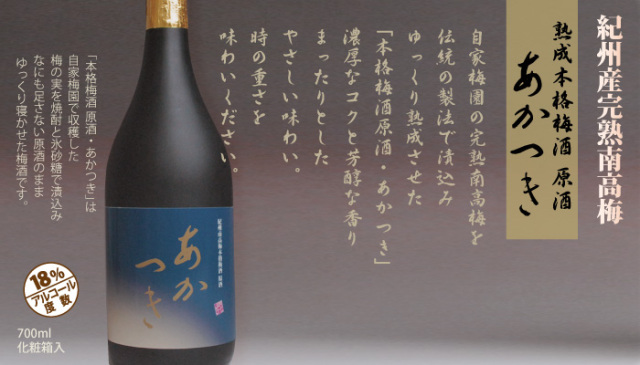 紀州産完熟南高梅
熟成本格梅酒 原酒
あかつき
自家梅園の完熟南高梅を
伝統の製法で漬込み
ゆっくり熟成させた
「本格梅酒原酒・あかつき」
濃厚なコクと芳醇な香り
まったりとした
やさしい味わい。
時の重さを
味わいください。
あかつき
「本格梅酒 原酒・あかつき」は
自家梅園で収穫した
梅の実を焼酎と氷砂糖で漬込み
なにも足さない原酒のまま
ゆっくり寝かせた梅酒です。
18%
アルコール
度数
700ml
化粧箱入